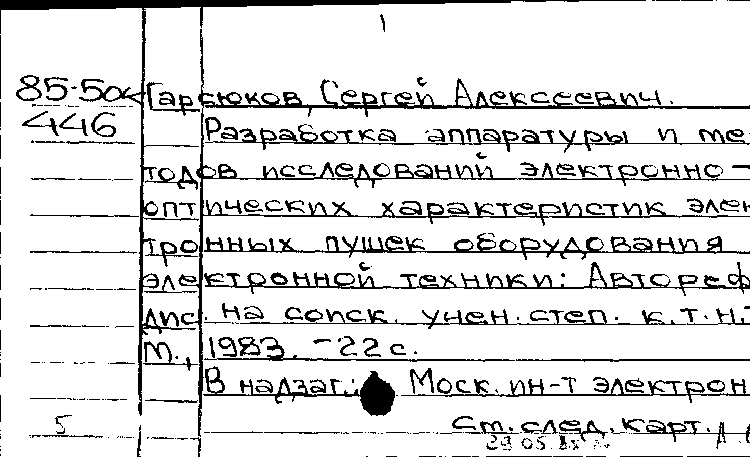 1
85-50к Гарсюков, Сергей Алексеевич.
446 Разработка аппаратуры и ме-
тодов исследований электронно-
оптических характеристик элек
тронных пушек оборудования
электронной техники: Автореф
дис. на соиск. учен. степ. к.т.н.
М., 1983. -22 с.
В надзаг.: Моск. ин-т электрон
5 См. след. карт.
29 05